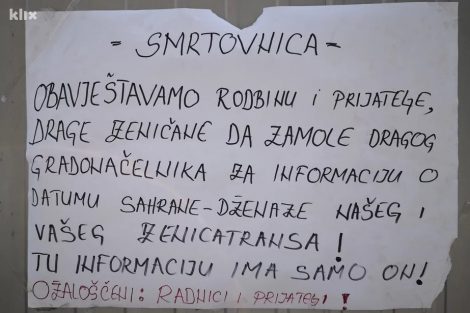 klix
- SMRTOVNICA -
OBAVJEŠTAVAMO RODBINU i PRIJATELJE,
DRAGE ZENIČANE DA ZAMOLE DRAGOG
GRADONAČELNIKA ZA INFORMACIJU O
DATUMU SAHRANE-DŽENAZE NAŠEG I
VAŠEG ZENICATRANSA!
TU INFORMACIJU IMA SAMO ON!
OŽALOŠČENI: RADNICI I PRIJATELJI!